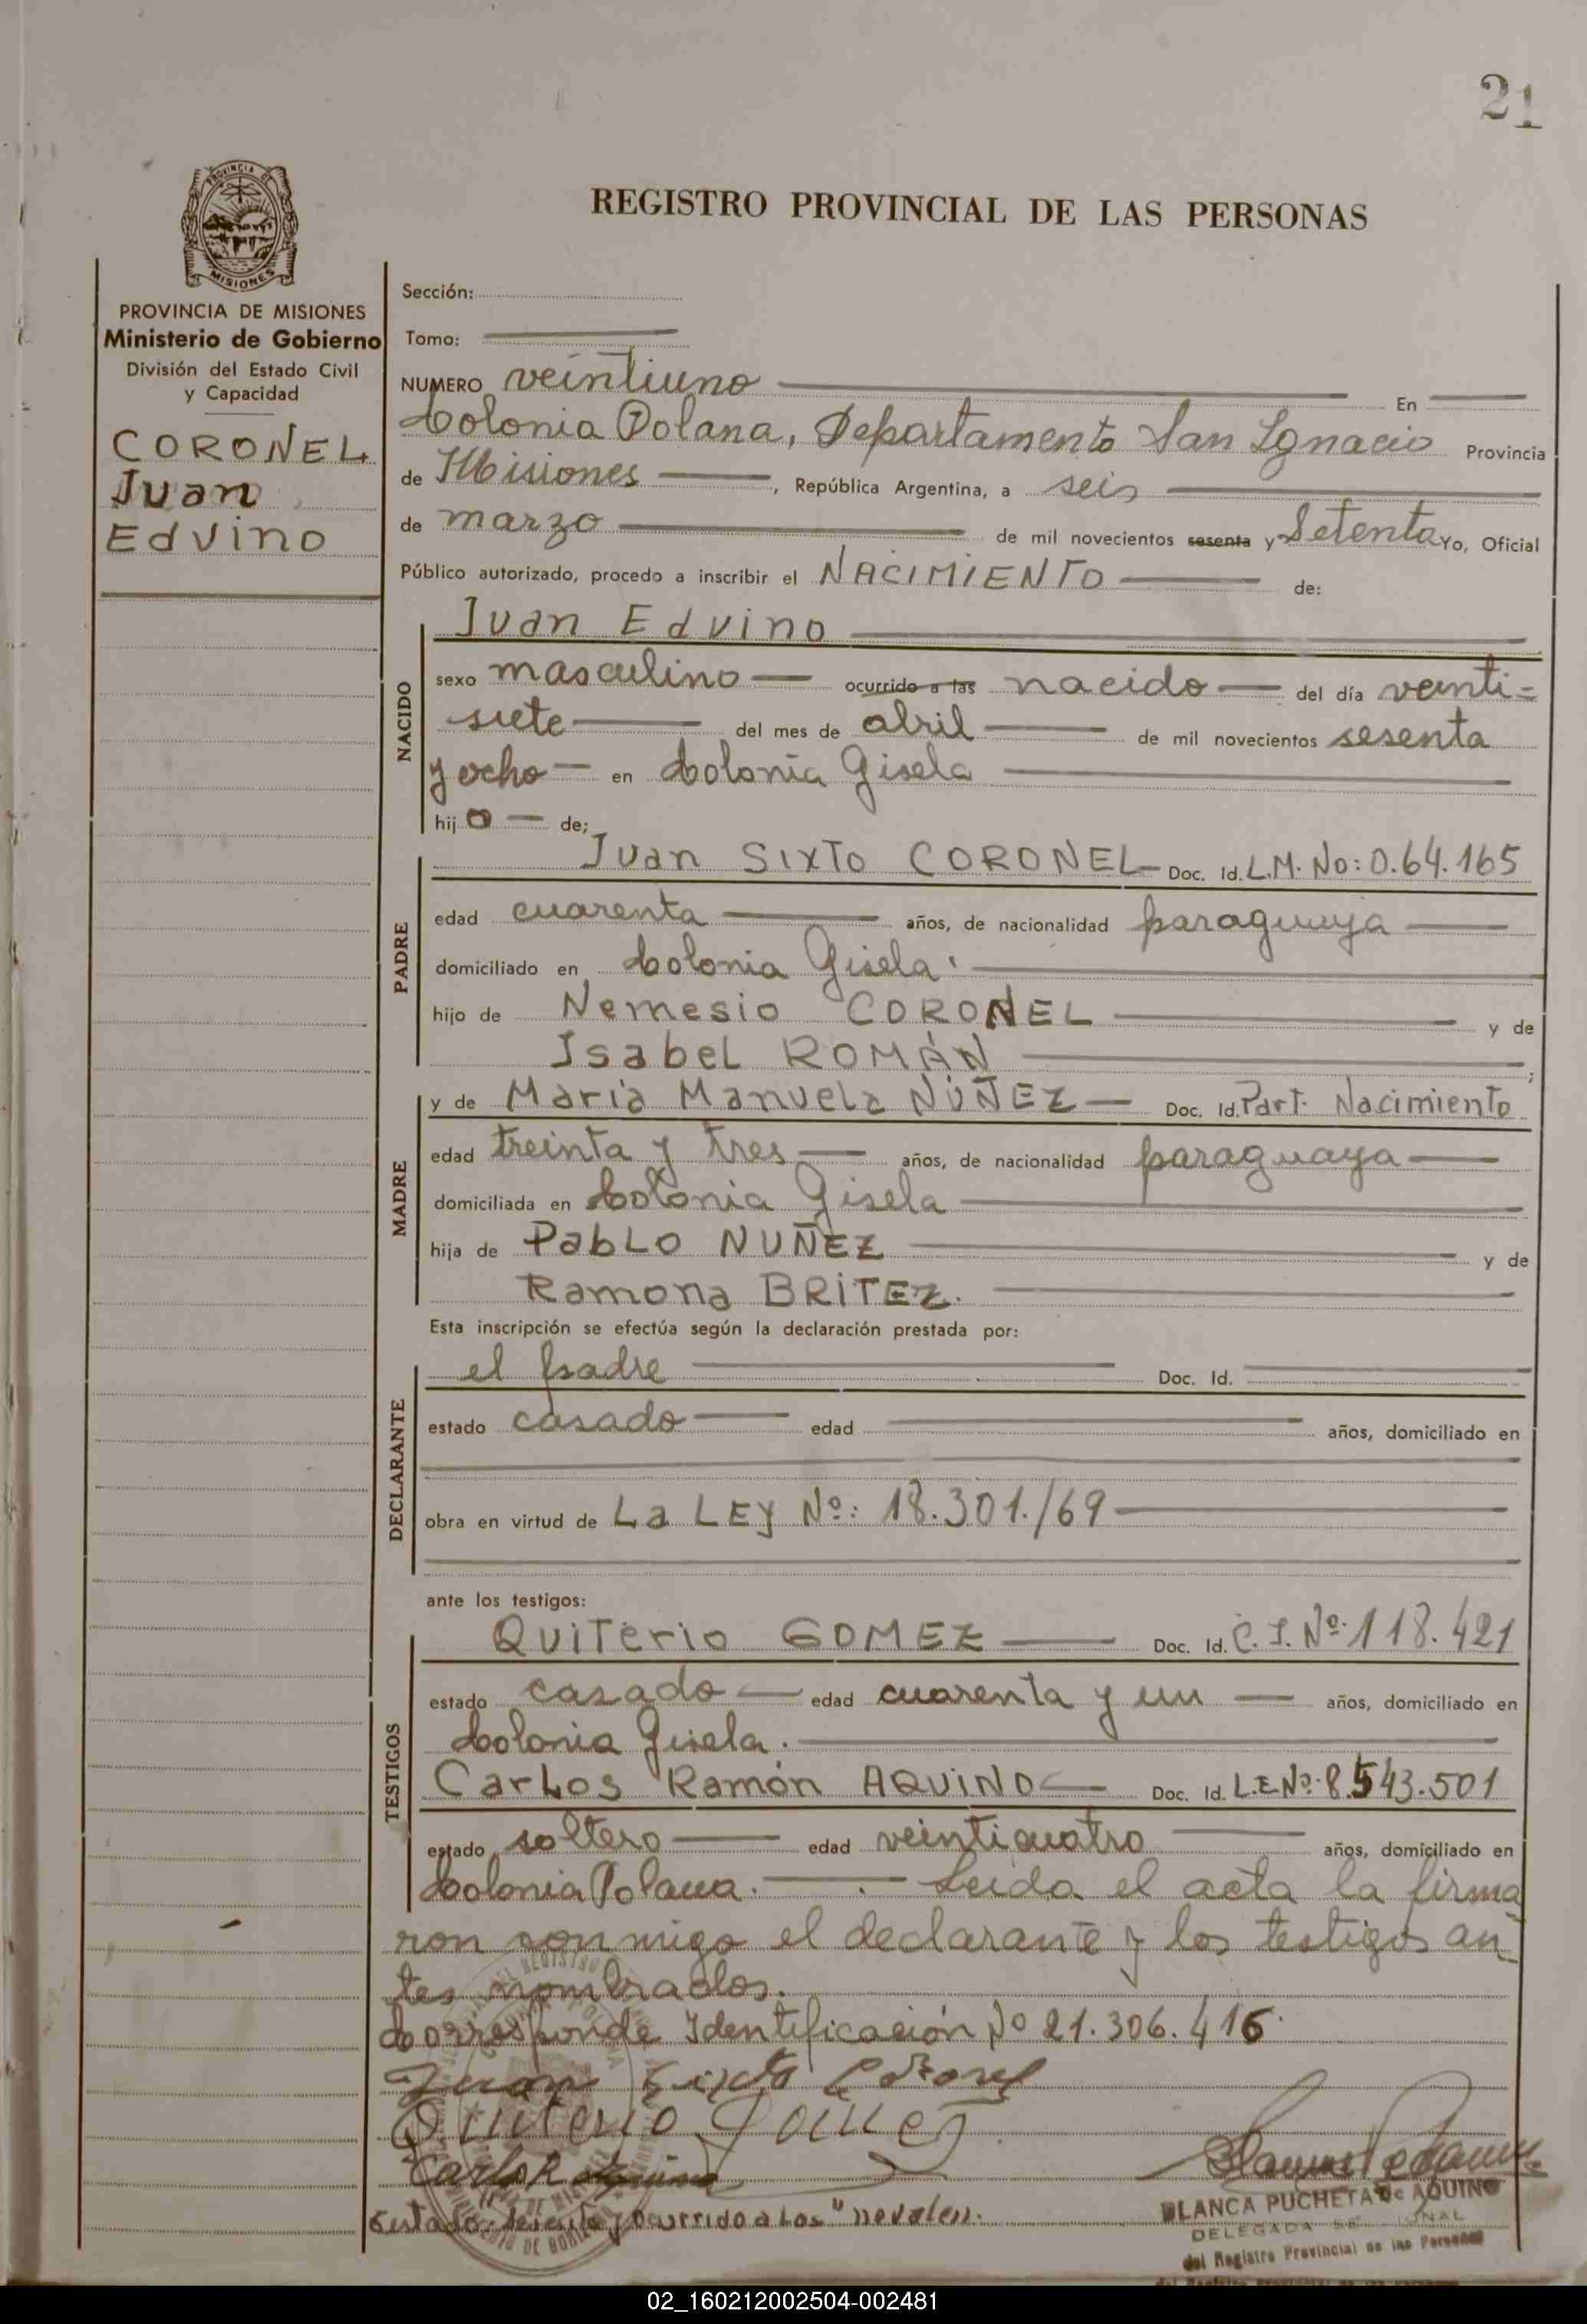 21
PROVINCIA DE
MISIONES
REGISTRO PROVINCIAL DE LAS PERSONAS
PROVINCIA DE MISIONES
Ministerio de Gobierno
División del Estado Civil
y Capacidad
CORONEL
Juan
Edvino
Sección:
Tomo:
NUMERO veintiuno En
Colonia Polana, Departamento San Ignacio Provincia
de Misiones , República Argentina, a seis
de marzo de mil novecientos sesenta y Setenta Yo, Oficial
Público autorizado, procedo a inscribir el NACIMIENTO de:
NACIDO
Juan Edvino
sexo masculino ocurrido a las nacido del día veinti=
siete del mes de abril de mil novecientos sesenta
y ocho en Colonia Gisela
hijo de;
PADRE
Juan Sixto CORONEL Doc. Id. L.M. No: 0.64.165
edad cuarenta años, de nacionalidad paraguaya
domiciliado en Colonia Gisela.
hijo de Nemesio CORONEL y de
Isabel ROMÁN ;
MADRE
y de María Manuela NÚÑEZ Doc. Id. Part. Nacimiento
edad treinta y tres años, de nacionalidad paraguaya
domiciliada en Colonia Gisela
hija de Pablo NUÑEZ y de
Ramona BRITEZ.
Esta inscripción se efectúa según la declaración prestada por:
DECLARANTE
el padre Doc. Id.
estado casado edad años, domiciliado en
obra en virtud de La LEY Nº: 18.301./69
ante los testigos:
TESTIGOS
Quiterio GOMEZ Doc. Id. C.I. Nº: 118.421
estado casado edad cuarenta y un años, domiciliado en
Colonia Gisela.
Carlos Ramón AQUINO Doc. Id. L.E. Nº: 8.543.501
estado soltero edad veinticuatro años, domiciliado en
Colonia Polana. Leida el acta la firma
ron conmigo el declarante y los testigos an
tes nombrados.
Corresponde Identificación Nº 21.306.416.
Juan Sixto Coronel
Quiterio Gomez
Carlos R Aquino
BLANCA PUCHETA de AQUINO
DELEGADA
del Registro Provincial de las Personas
Testado: sesenta y ocurrido a las " no valen.
02_160212002504-002481